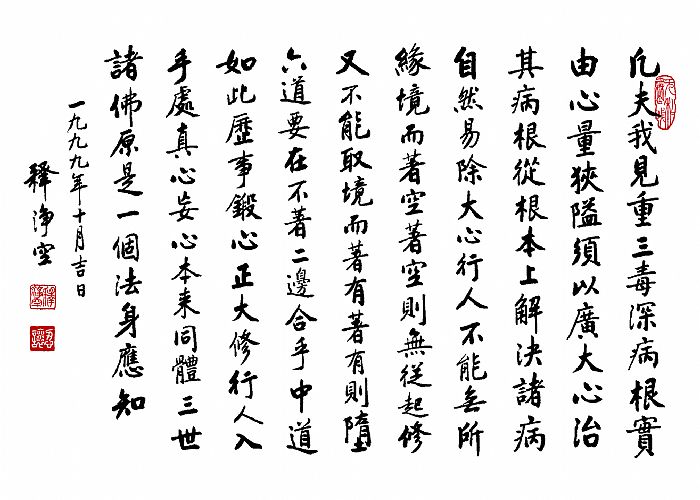 凡夫我見重三毒深病根實
由心量狹隘須以廣大心治
其病根從根本上解決諸病
自然易除大心行人不能無所
緣境而著空著空則無從起修
又不能取境而著有著有則墮
六道要在不著二邊合乎中道
如此歷事鍛心正大修行人入
手處真心妄心本来同體三世
諸佛原是一個法身應知
一九九九年十月吉日
釋淨空